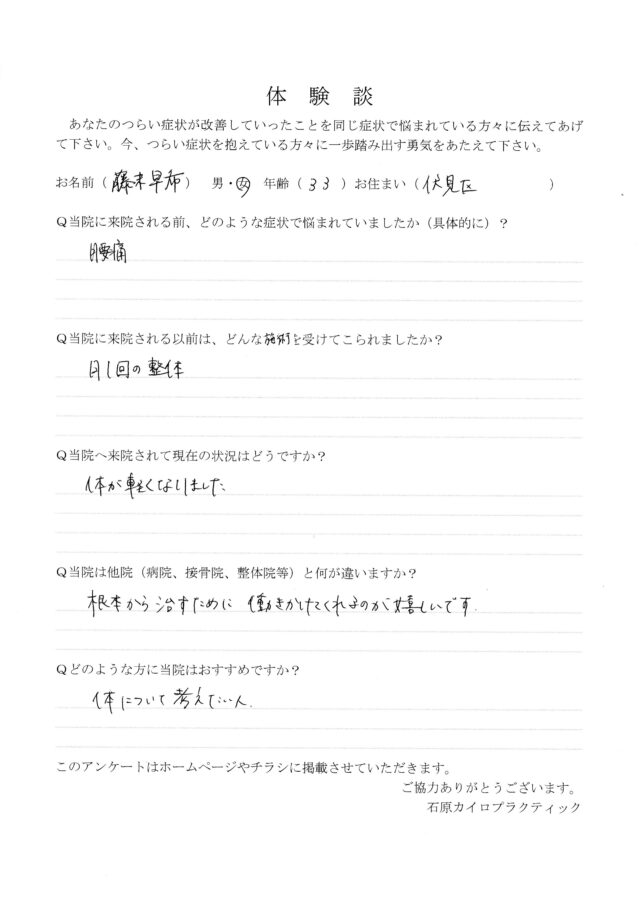 体験談
あなたのつらい症状が改善していったことを同じ症状で悩まれている方々に伝えてあげ
て下さい。今、つらい症状を抱えている方々に一歩踏み出す勇気をあたえて下さい。
お名前（藤末早布）　男・女　年齢（33）お住まい（伏見区　　　）
Q当院に来院される前、どのような症状で悩まれていましたか（具体的に）？
腰痛
Q当院に来院される以前は、どんな施術を受けてこられましたか？
月1回の整体
Q当院へ来院されて現在の状況はどうですか？
体が軽くなりました
Q当院は他院（病院、接骨院、整体院等）と何が違いますか？
根本から治すために 働きかけてくれるのが嬉しいです.
Qどのような方に当院はおすすめですか？
体について考えたい人.
このアンケートはホームページやチラシに掲載させていただきます。
ご協力ありがとうございます。
石原カイロプラクティック